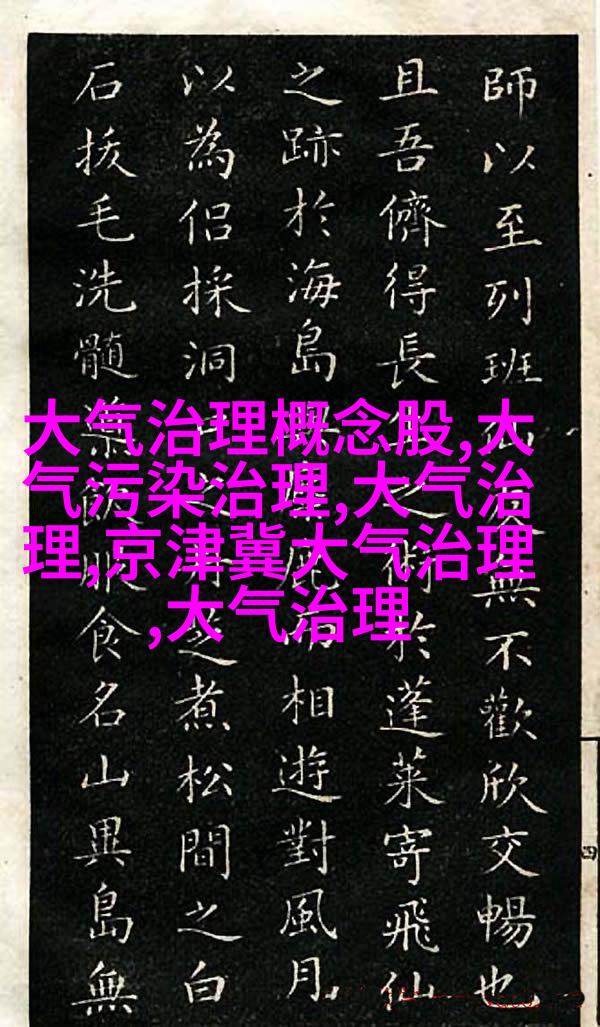 大气治理概念股,大
气污染治理,大气治
理,京津冀大气治理
,大气治理
師以至列班無不歡欣交暢也
且吾儕得長生之術於蓬莱寄飛仙
之跡於海島而相遊對風月
以為侣採洞之煮松間之白
石拔毛洗髓服食名山異島無